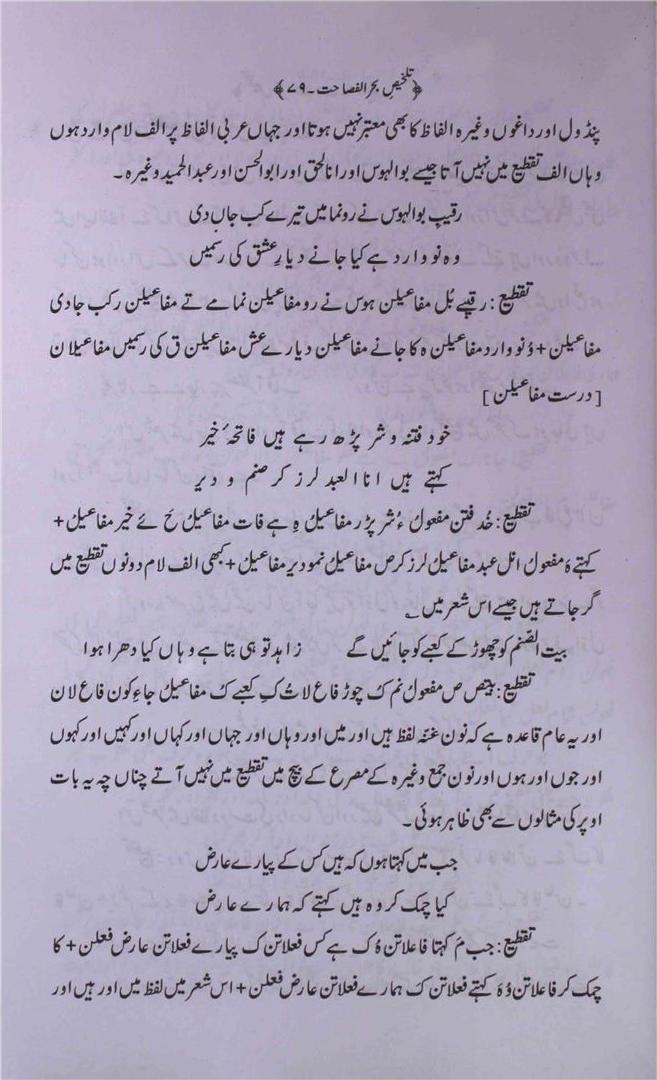 ﴿تلخیصِ بحر الفصاحت۔۷۹﴾
پنڈول اور داغوں وغیرہ الفاظ کا بھی معتبر نہیں ہوتا اور جہاں عربی الفاظ پر الف لام وارد ہوں
وہاں الف تقطیع میں نہیں آتا جیسے بوالہوس اور انا الحق اور ابوالحسن اور عبدالحمید وغیرہ۔
رقیبِ بوالہوس نے رونما میں تیرے کب جاں دی
وہ نووارد ہے کیا جانے دیارِ عشق کی رسمیں
تقطیع: رقیبے بُل مفاعیلن ہوس نے رو مفاعیلن نمامے تے مفاعیلن رکب جادی
مفاعیلن + وُنووارد مفاعیلن ہ کا جانے مفاعیلن دیارے عش مفاعیلن ق کی رسمیں مفاعیلان
[درست مفاعیلن]
خود فتنہ و شر پڑھ رہے ہیں فاتحۂ خیر
کہتے ہیں انا العبد لرز کر صنم و دیر
تقطیع: خُد فتن مفعولُ ءُ شر پڑر مفاعیلُ ہِ ہے فات مفاعیلُ حَ ئے خیر مفاعیل +
کہتے ہَ مفعولُ انل عبد مفاعیلُ لرز کر ص مفاعیلُ نمو دیر مفاعیل + کبھی الف لام دونوں تقطیع میں
گر جاتے ہیں جیسے اس شعر میں ؎
بیت الصّنم کو چھوڑ کے کعبے کو جائیں گے زاہد تو ہی بتا ہے وہاں کیا دھرا ہوا
تقطیع: بیتص ص مفعولُ نم ک چوڑ فاع لاتُ کِ کعبے کُ مفاعیلُ جاءِ کون فاع لان
اور یہ عام قاعدہ ہے کہ نون غنّہ لفظ ہیں اور میں اور وہاں اور جہاں اور کہاں اور کہیں اور کہوں
اور جوں اور ہوں اور نون جمع وغیرہ کے مصرع کے بیچ میں تقطیع میں نہیں آتے چناں چہ یہ بات
اوپر کی مثالوں سے بھی ظاہر ہوئی۔
جب میں کہتا ہوں کہ ہیں کس کے پیارے عارض
کیا چمک کر وہ ہیں کہتے کہ ہمارے عارض
تقطیع: جب مَ کہتا فاعلاتن ہُ ک ہے کس فعلاتن ک پیارے فعلاتن عارض فعلن + کا
چمک کر فاعلاتن وُہَ کہتے فعلاتن کَ ہمارے فعلاتن عارض فعلن + اس شعر میں لفظ میں اور ہیں اور